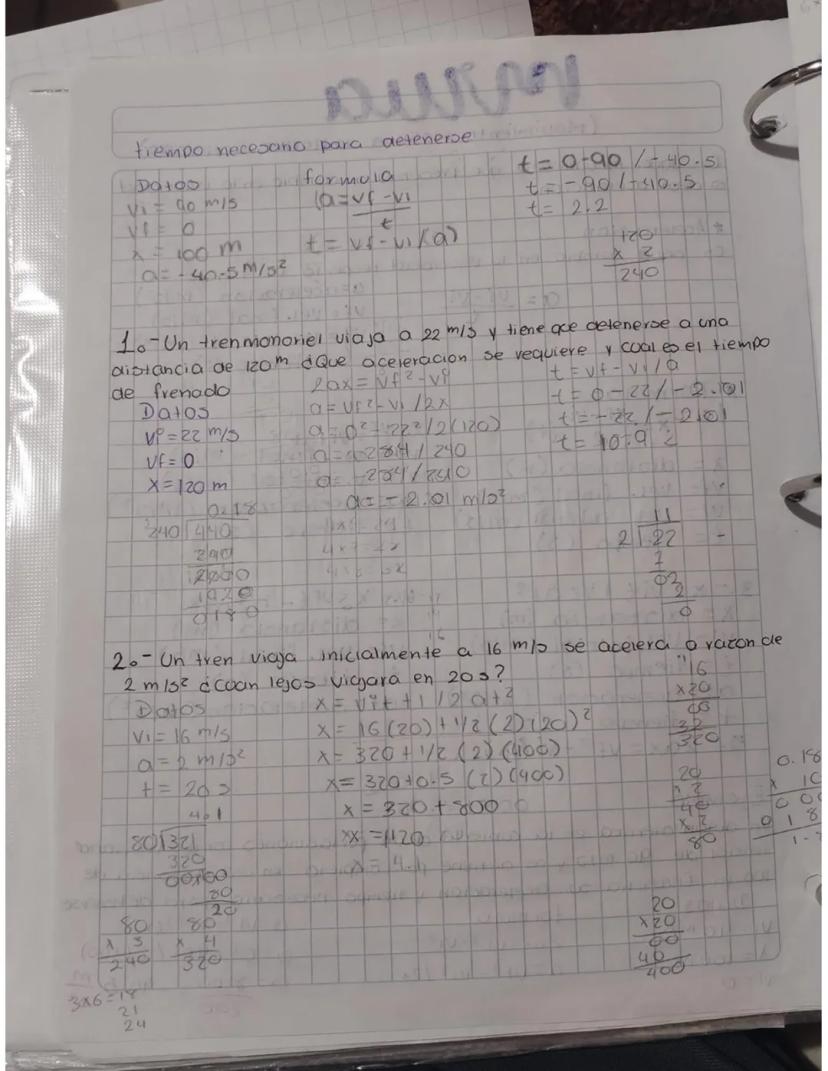 mrua
tiempo necesario para detenerse
Datos
Vi = 90 m/s
Vf = 0
x = 100 m
a = -40.5 m/s²
formula
(a = vf - vi
t
t = vf - vi/(a)
t = 0-90 / -40.5
t = -90 / -40.5
t = 2.2
120
x 2
240
1.- Un tren monoriel viaja a 22 m/s y tiene que detenerse a una
distancia de 120m ¿Que aceleracion se requiere y cual es el tiempo
de frenado
Datos
Vf = 0
x = 120 m
a = vf² - vi /2x
a = 0² - 22² /2(120)
a = - 2.01 m/s²
t = vf - vi / a
t = 0 - 22 / - 2.01
t = -22 / - 2.01
t = 10.9
0.18
240 440
11
2 22
0
2.- Un tren viaja inicialmente a 16 m/s se acelera a razon de
2 m/s² ¿coan lejos viajara en 20s?
Datos
Vi = 16 m/s
a = 2 m/s²
t = 20 s
x = vit + 1/2 at²
x = 16(20) + 1/2 (2) (20)²
x = 320 + 1/2 (2) (400)
x = 320 + 0.5 (2) (400)
x = 320 + 800
x = 1120
16
x20
00
32
320
20
x 2
40
x 2
80
0.18
x 10
4.1
80 321
320
80
20
80
x 3
240
80
x 4
320
3x6 = 18
21
24
20
x20
00
40
400